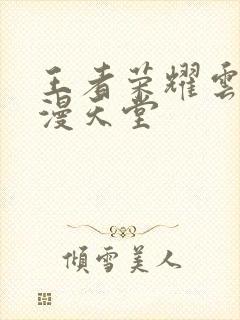 王者荣耀雲
漫天堂
傾雪美人